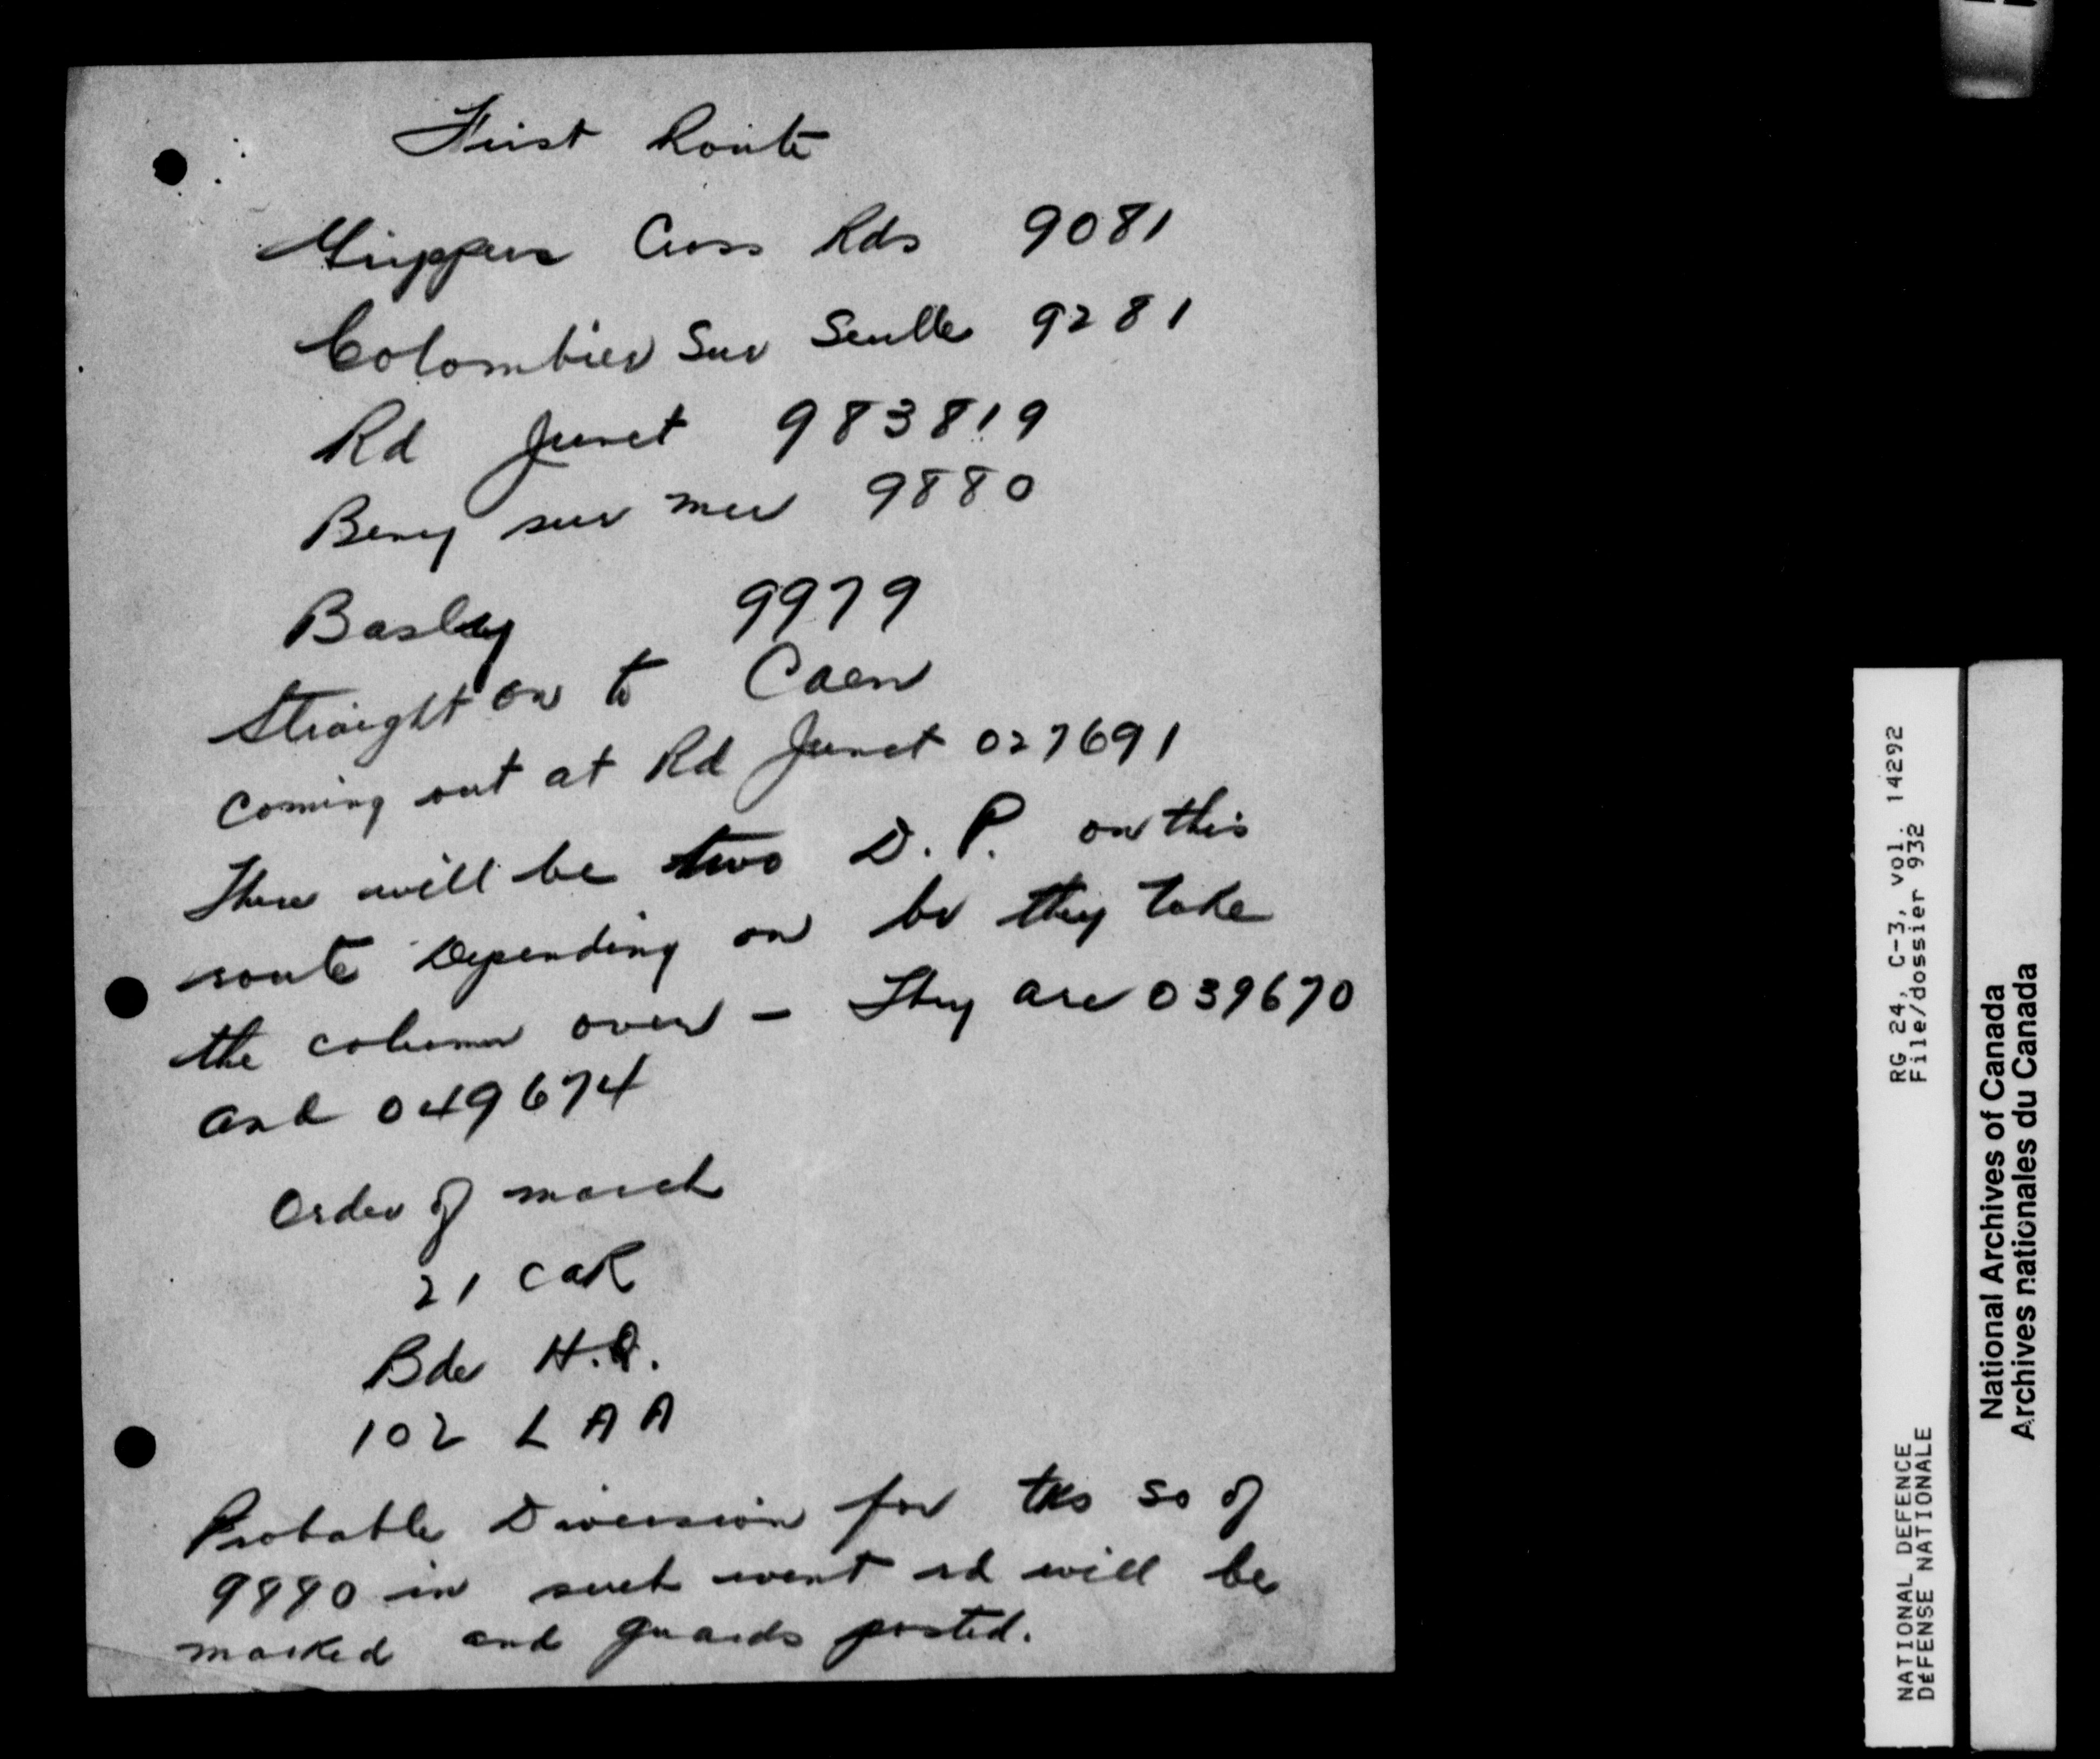 First Route
Grippers Cross Rds 9081
Colombier Sur Seulle 9281
Rd Junct 983819
Beny sur mer 9880
Basly 9979
Straight on to Caen
coming out at Rd Junct 027691
There will be two D.P. on this
route Depending on they take
the column over - They are 039670
and 049674
Order of march
21 CAR
Bde H.Q.
102 LAA
Probable Diversion for tks so of
9880 in such event rd will be
marked and guards posted.
RG 24, C-3, vol. 14292
File/dossier 932
NATIONAL DEFENCE
DÉFENSE NATIONALE
National Archives of Canada
Archives nationales du Canada